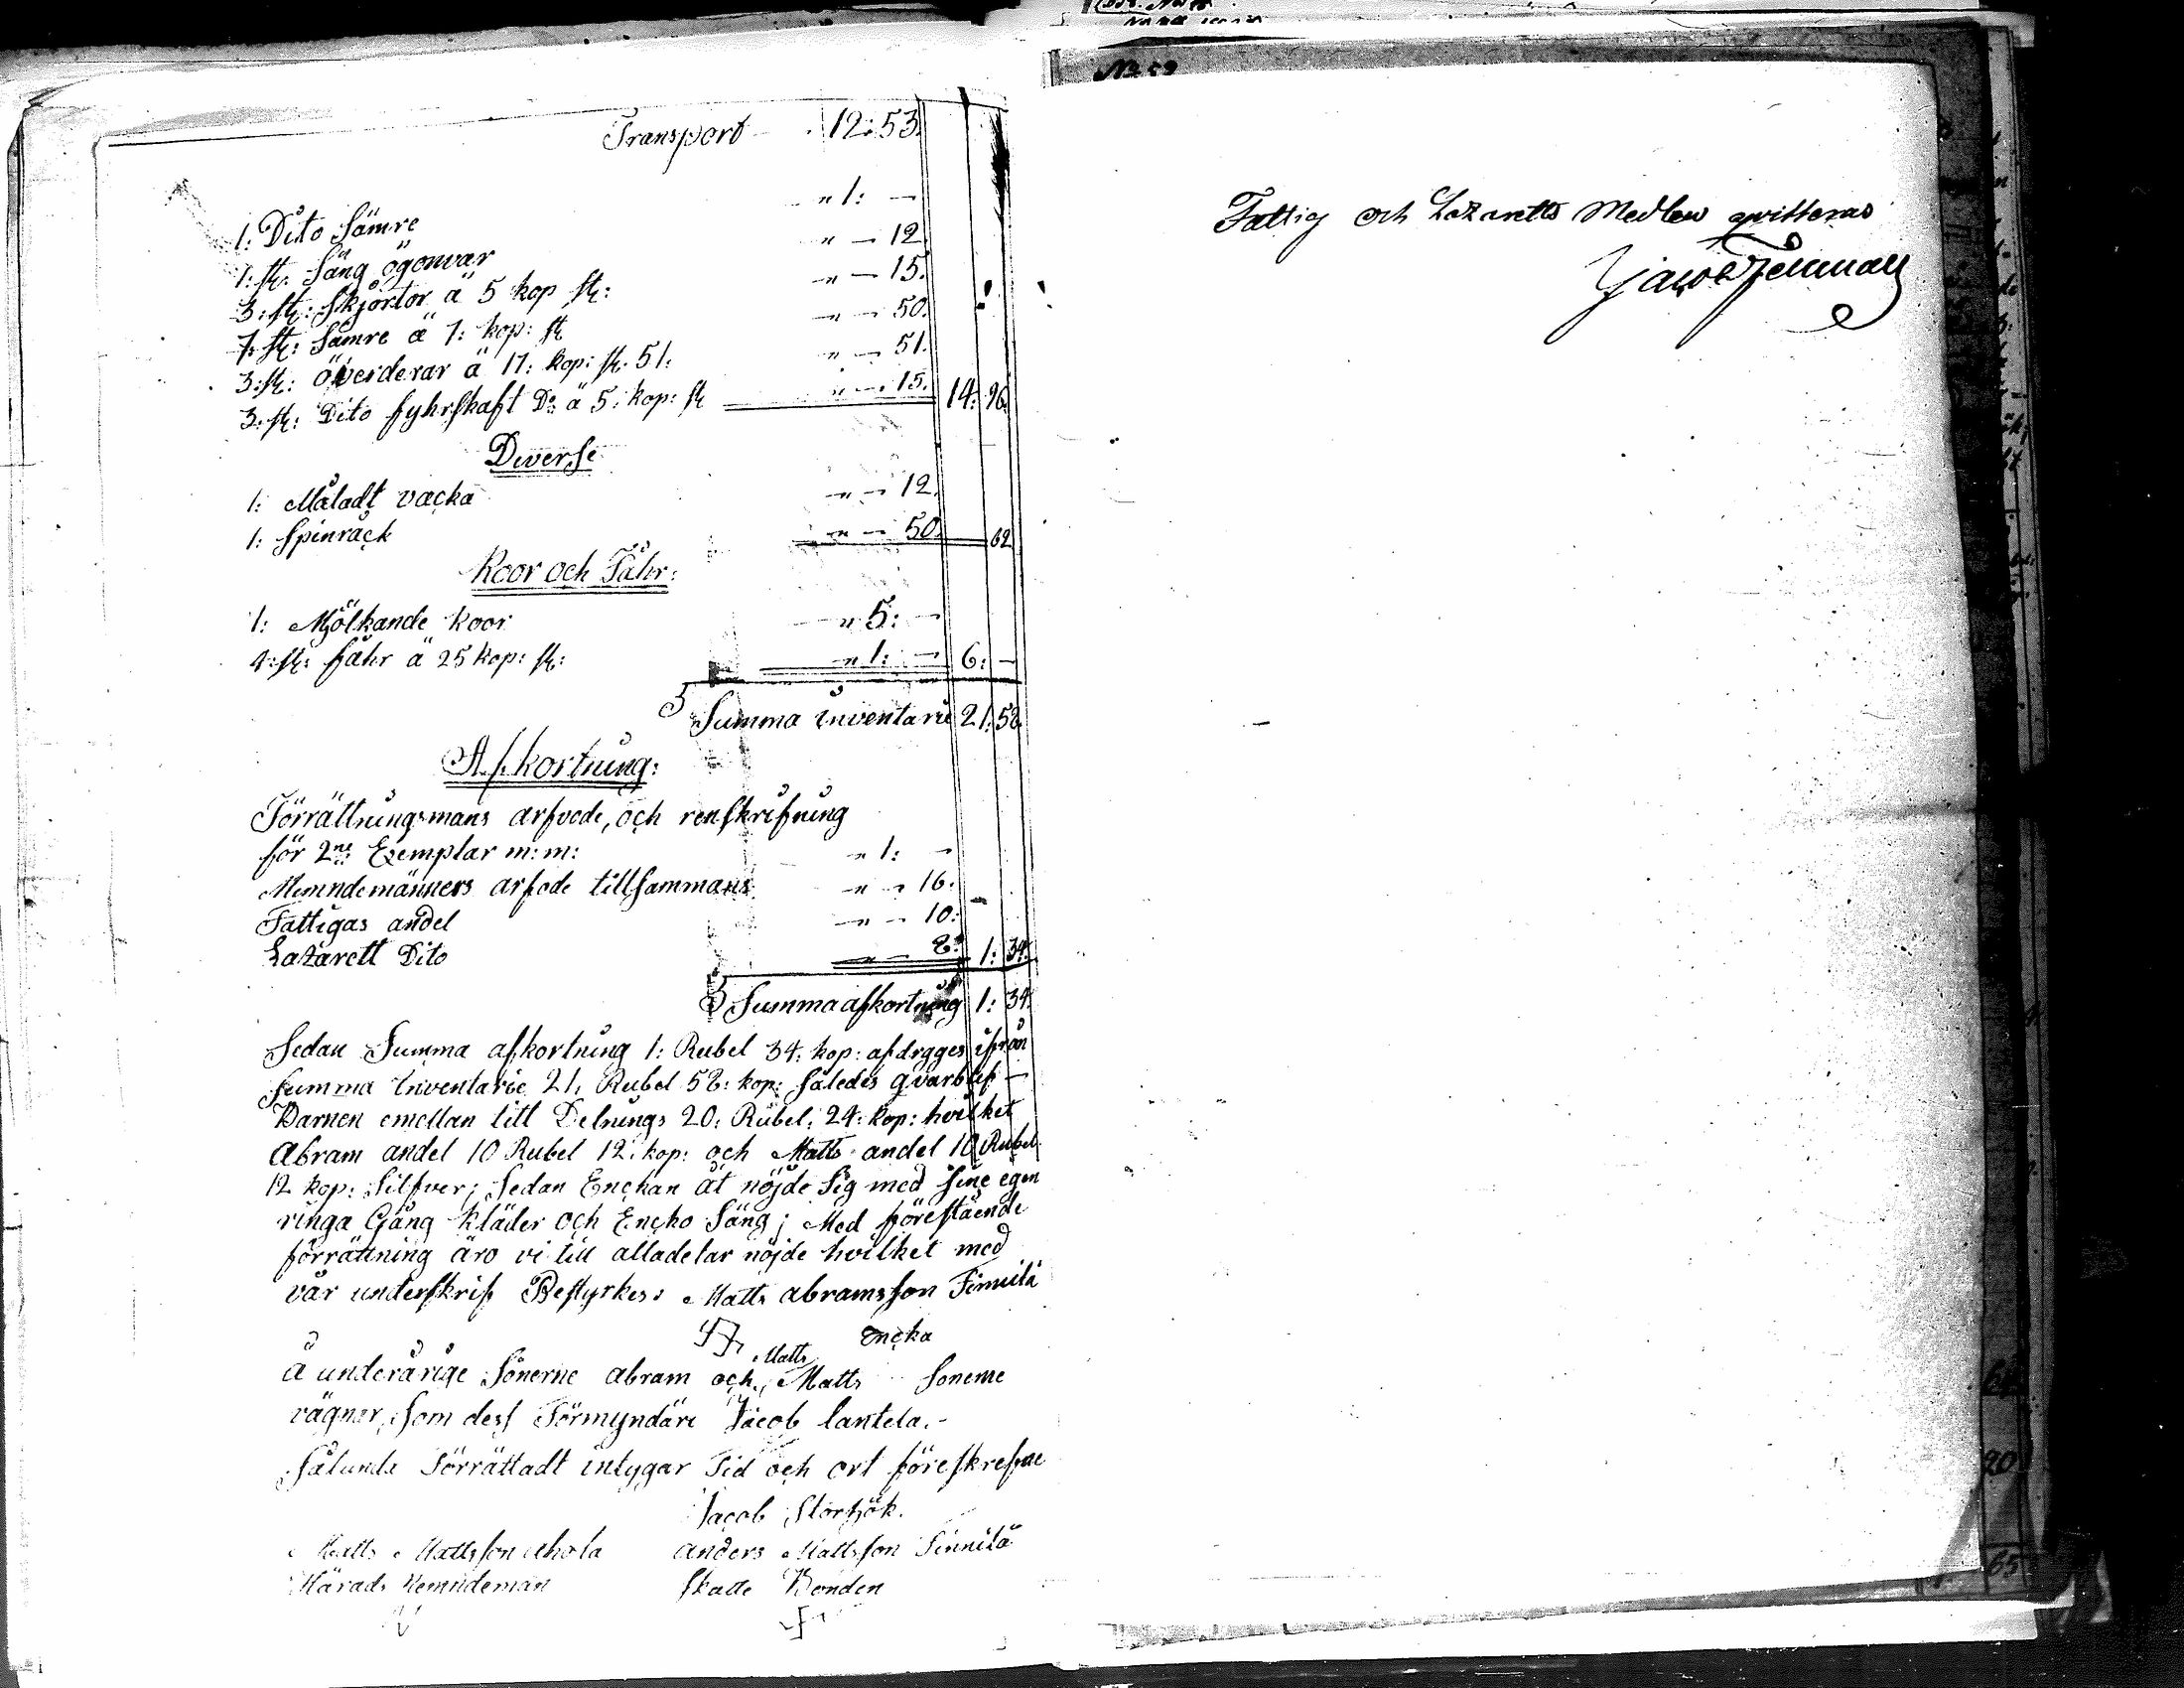 Transport 12:53.
1: Dito Sämre " 1: —
1: st: Säng ögonvar " — 12
3: st: Skjortor ä 5 kop st: " — 15.
7: st: Sämre ä 7: kop: st " — 50.
3: st: överderar ä 17: kop: st. 51. " — 51.
3: st: Dito fyhrskaft Do ä 5: kop: st " — 15. 14: 96.
Diverse
1: Måladt vacka " — 12.
1: Spinråck " — 50. 62
Koor och Fåhr:
1: Mjölkande koor " 5: —
4: st: fåhr ä 25 kop: st: " 1: — 6: —
Summa inventarie 21: 58.
Afkortning:
Förrättningsmans arfvode, och renskrifning
för 2ne: Exemplar m: m: " 1: —
Memndemänners arfode tillsammans " — 16.
Fattigas andel " — 10:
Lazarett Dito " — 8: 1: 34.
Summa afkortning 1: 34.
Sedan Summa afkortning 1: Rubel 34: kop: afdrgges ifrån
summa Inventarie 21. Rubel 58: kop: Således qvarblef —
Barnen emellan till Delnings 20: Rubel: 24: kop: hvilket
Abram andel 10 Rubel 12: kop: och Matts andel 10 Rubel
12 kop: Silfver; Sedan Enckan åt nöjde Sig med sine egen
ringa Gång kläder och Encko Säng; Med förestående
förrättning äro vi till alladelar nöjde hvilket med
vår underskrif Bestyrkes: Matts abramsson Finnilä
encka
å underårige Sönerne abram och Matts Matts Sonerne
vägner, Som dess Förmyndäre Jacob lantela.-
Sålunda Förrättadt intygar Tid och ort föreskrefne
Jacob Storbjök.
Matts Mattsson ahola anders Mattsson Finnilä
Härads Nemndeman Skatte Bonden
No 59
Fattig och Lazaretts Medlen qvitteras